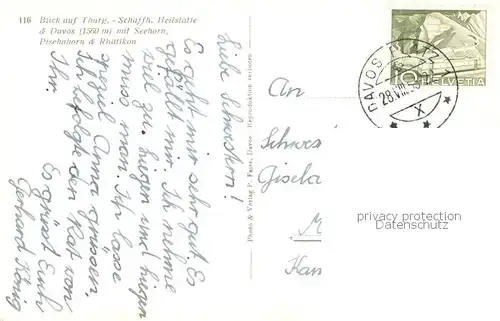 116 Blick auf Thurg. - Schaffh. Heilstätte
& Davos (1560 m) mit Seehorn,
Pischahorn & Rhätikon
Liebe Schwestern!
Es geht mir sehr gut. Es
gefällt mir. Ich nehme
viel zu. Liegen und liegen
muss man. Ich lasse
speziel Anna grüssen.
Ich befolgte den Rat von
Ihr.
Es grüsst Euch
Gerhard König
Photo & Verlag P. Faiss, Davos Reproduktion verboten
An
Schwes
Gisela
M
Kan
HELVETIA
10
DAVOS PLATZ
28.VIII.
X
privacy protection
Datenschutz